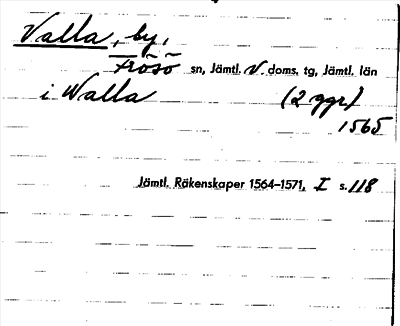 Valla, by,
Frösö sn, Jämtl. V. doms. tg, Jämtl. län
i Walla (2 ggr)
1565
Jämtl. Räkenskaper 1564–1571, I s. 118